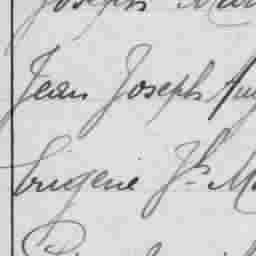 Joseph Mar
Jean Joseph Aug
Eugene Jh M